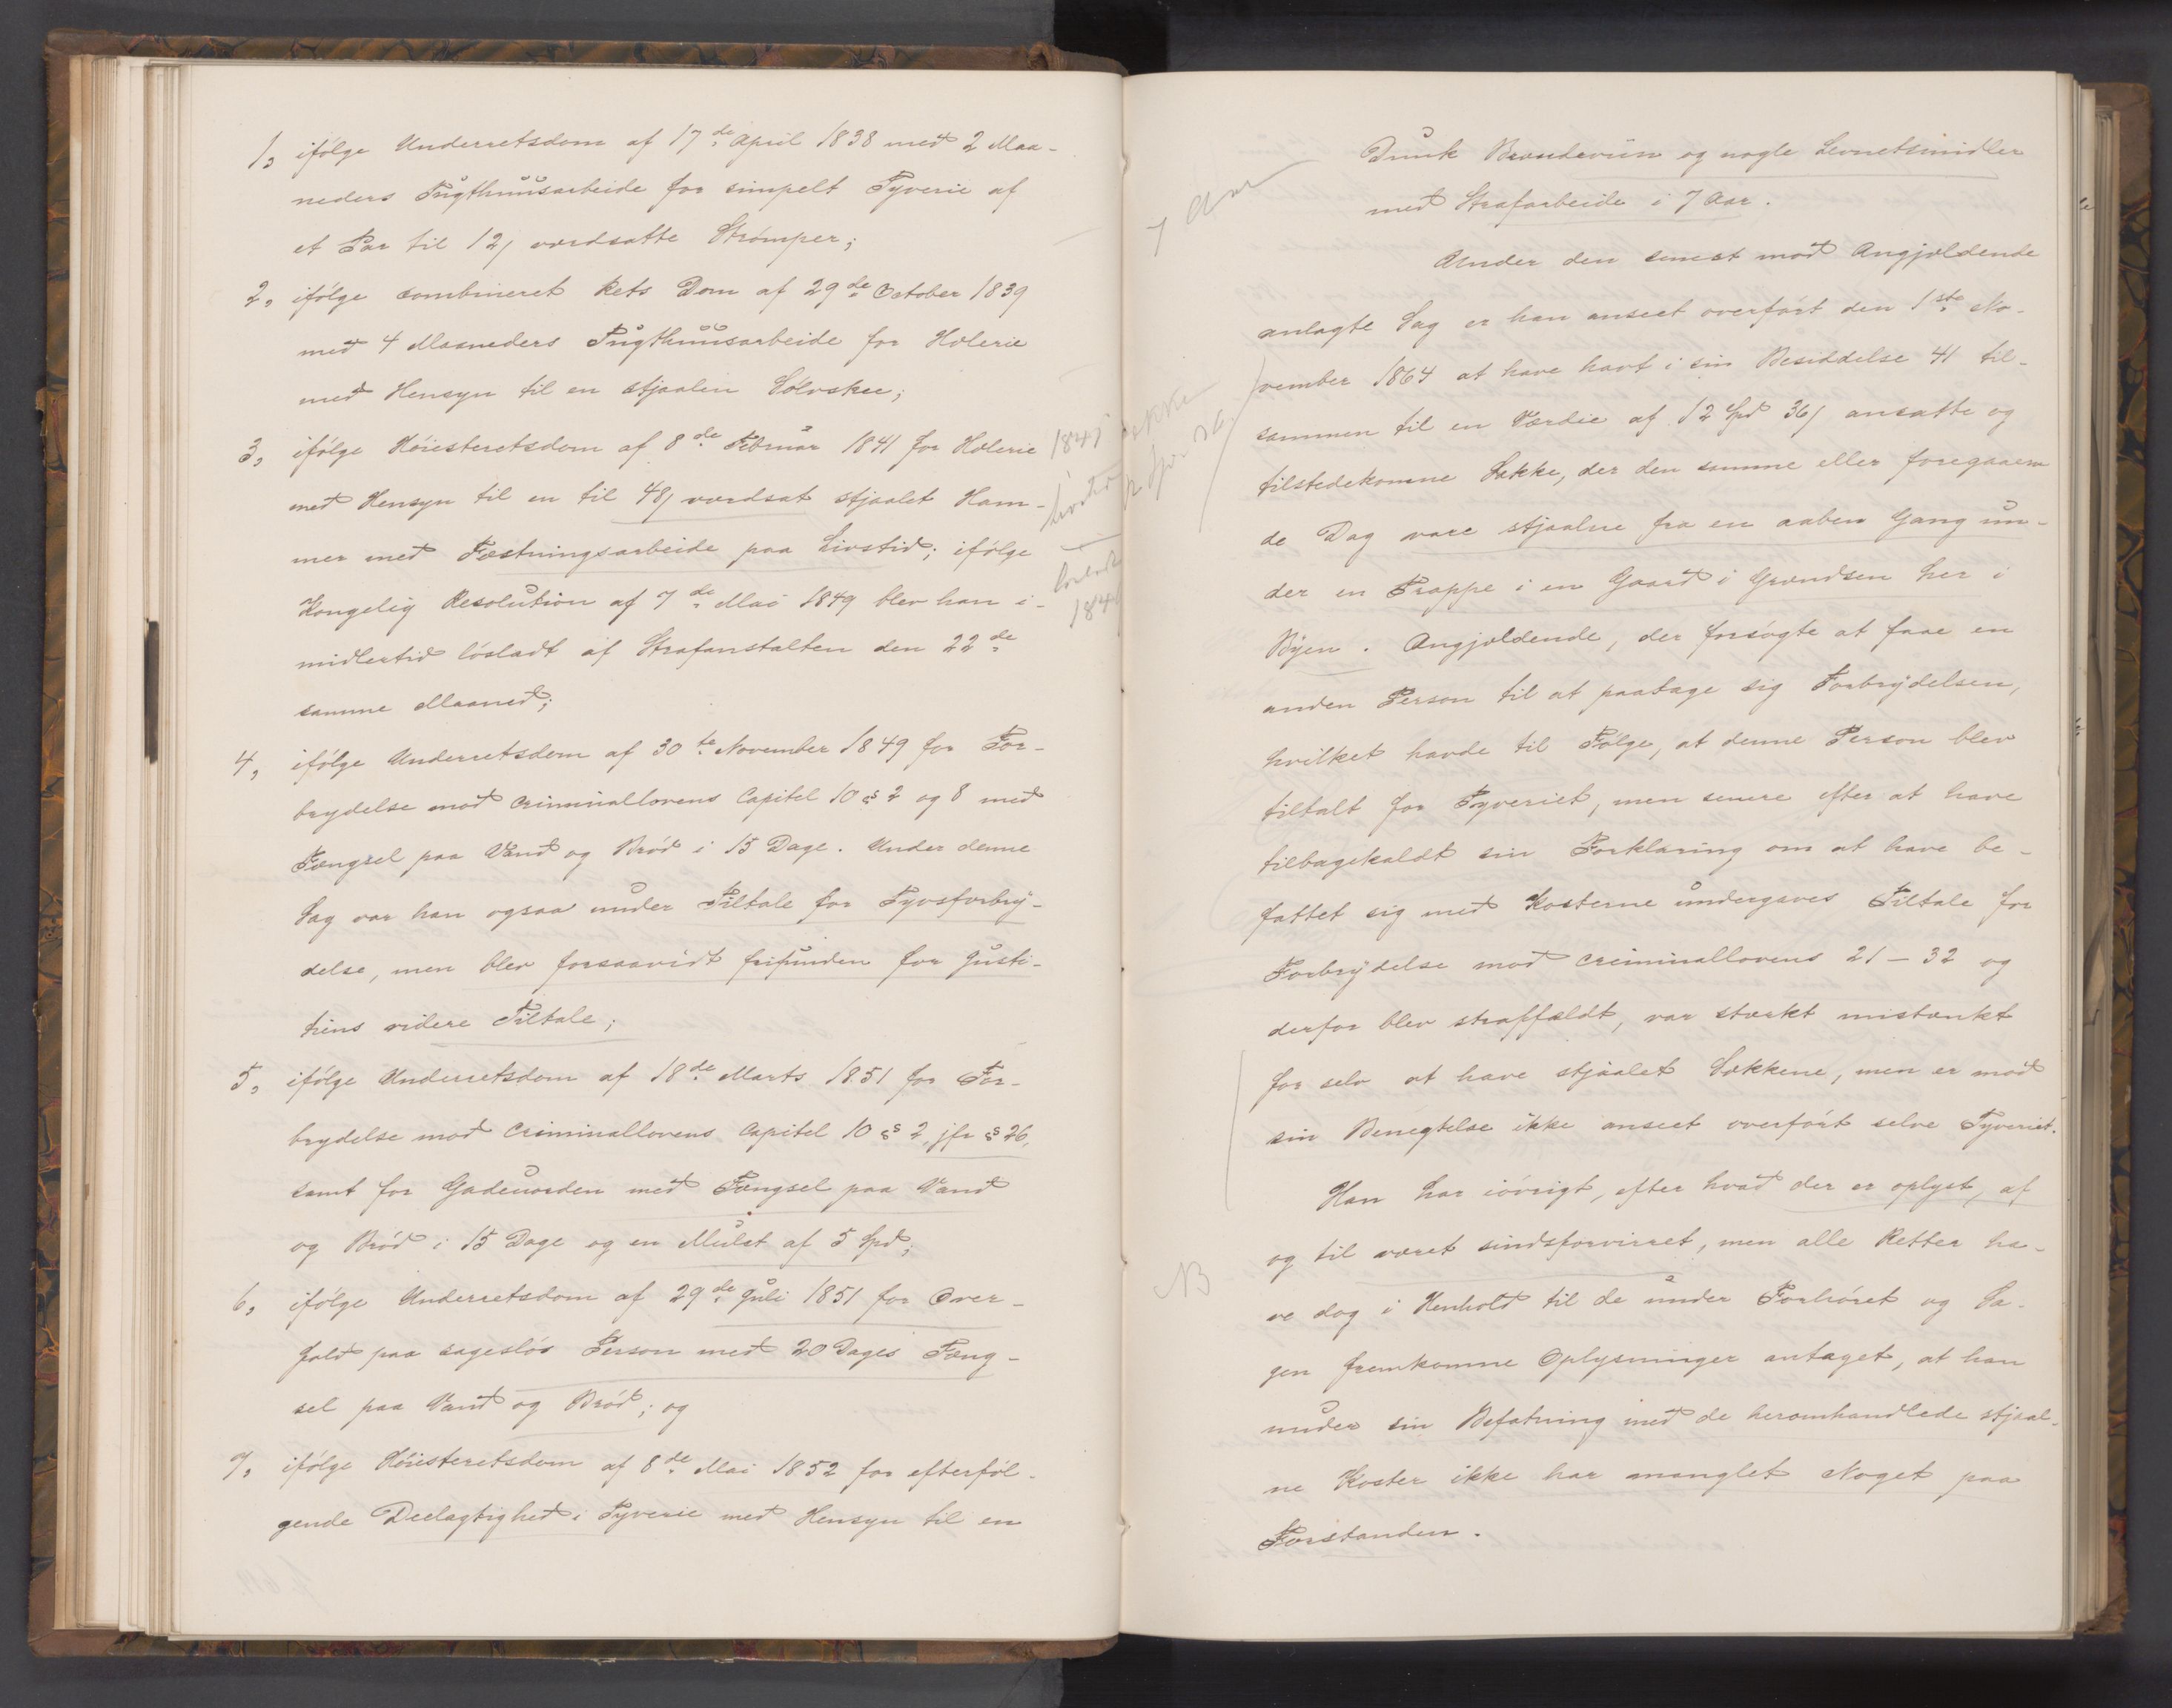 1, ifölge Underretsdom af 17de April 1838 med 2 Maa-
neders Tugthuusarbeide for simpelt Tyverie af
et Par til 12ʃ værdsatte Strömper;
2, ifölge combineret Rets Dom af 29de October 1839
med 4 Maaneders Tugthuusarbeide for Hælerie
med Hensyn til en stjaalen Sölvskee;
3, ifölge Höiesteretsdom af 8de Februar 1841 for Hælerie
med Hensyn til en til 48ʃ værdsat stjaalet Ham-
mer med Fæstningsarbeide paa Livstid; ifölge
Kongelig Resolution af 7de Mai 1849 blev han i-
midlertid lösladt af Strafanstalten den 22de
samme Maaned;
4, ifölge Underretsdom af 30te November 1849 for For-
brydelse mod Criminallovens Capitel 10 § 2 og 8 med
Fængsel paa Vand og Bröd i 15 Dage. Under denne
Sag var han ogsaa under Tiltale for Tyvsforbry-
delse, men blev forsaavidt frifunden for Justi-
tiens videre Tiltale;
5, ifölge Underretsdom af 18de Marts 1851 for For-
brydelse mod Criminallovens Capitel 10 § 2, jfr § 26,
samt for Gadeuorden med Fængsel paa Vand
og Bröd i 15 Dage og en Mulct af 5 Spd;
6, ifölge Underretsdom af 29de Juli 1851 for Over-
fald paa sageslös Person med 20 Dages Fæng-
sel paa Vand og Bröd; og
7, ifölge Höiesteretsdom af 8de Mai 1852 for efterföl-
gende Deelagtighed i Tyverie med Hensyn til en
1841
Livstid
lösladt
1849
Dunk Brændeviin og nogle Levnetsmidler
med Strafarbeide i 7 Aar.
7 Aar
Under den senest mod Angjældende
anlagte Sag er han anseet overfört den 1ste No-
vember 1864 at have havt i sin Besiddelse 41 til-
sammen til en Værdie af 12 Spd 36ʃ ansatte og
tilstedekomne Sække, der den samme eller foregaaen
de Dag vare stjaalne fra en aaben Gang un-
der en Trappe i en Gaard i Grændsen her i
Byen. Angjældende, der forsögte at faae en
anden Person til at paatage sig Forbrydelsen,
hvilket havde til Fölge, at denne Person blev
tiltalt for Tyveriet, men senere efter at have
tilbagekaldt sin Forklaring om at have be-
fattet sig med Kosterne undergaves Tiltale for
Forbrydelse mod Criminallovens 21-32 og
derfor blev straffældt, var stærkt mistænkt
for selv at have stjaalet Sækkene, men er mod
sin Benegtelse ikke anseet overfört selve Tyveriet.
Han har iövrigt, efter hvad der er oplyst, af
og til været sindsforvirret, men alle Retter ha-
NB
ve dog i Henhold til de under Forhöret og Sa-
gen fremkomne Oplysninger antaget, at han
under sin Befatning med de heromhandlede stjaal-
ne Koster ikke har manglet Noget paa
Forstanden.